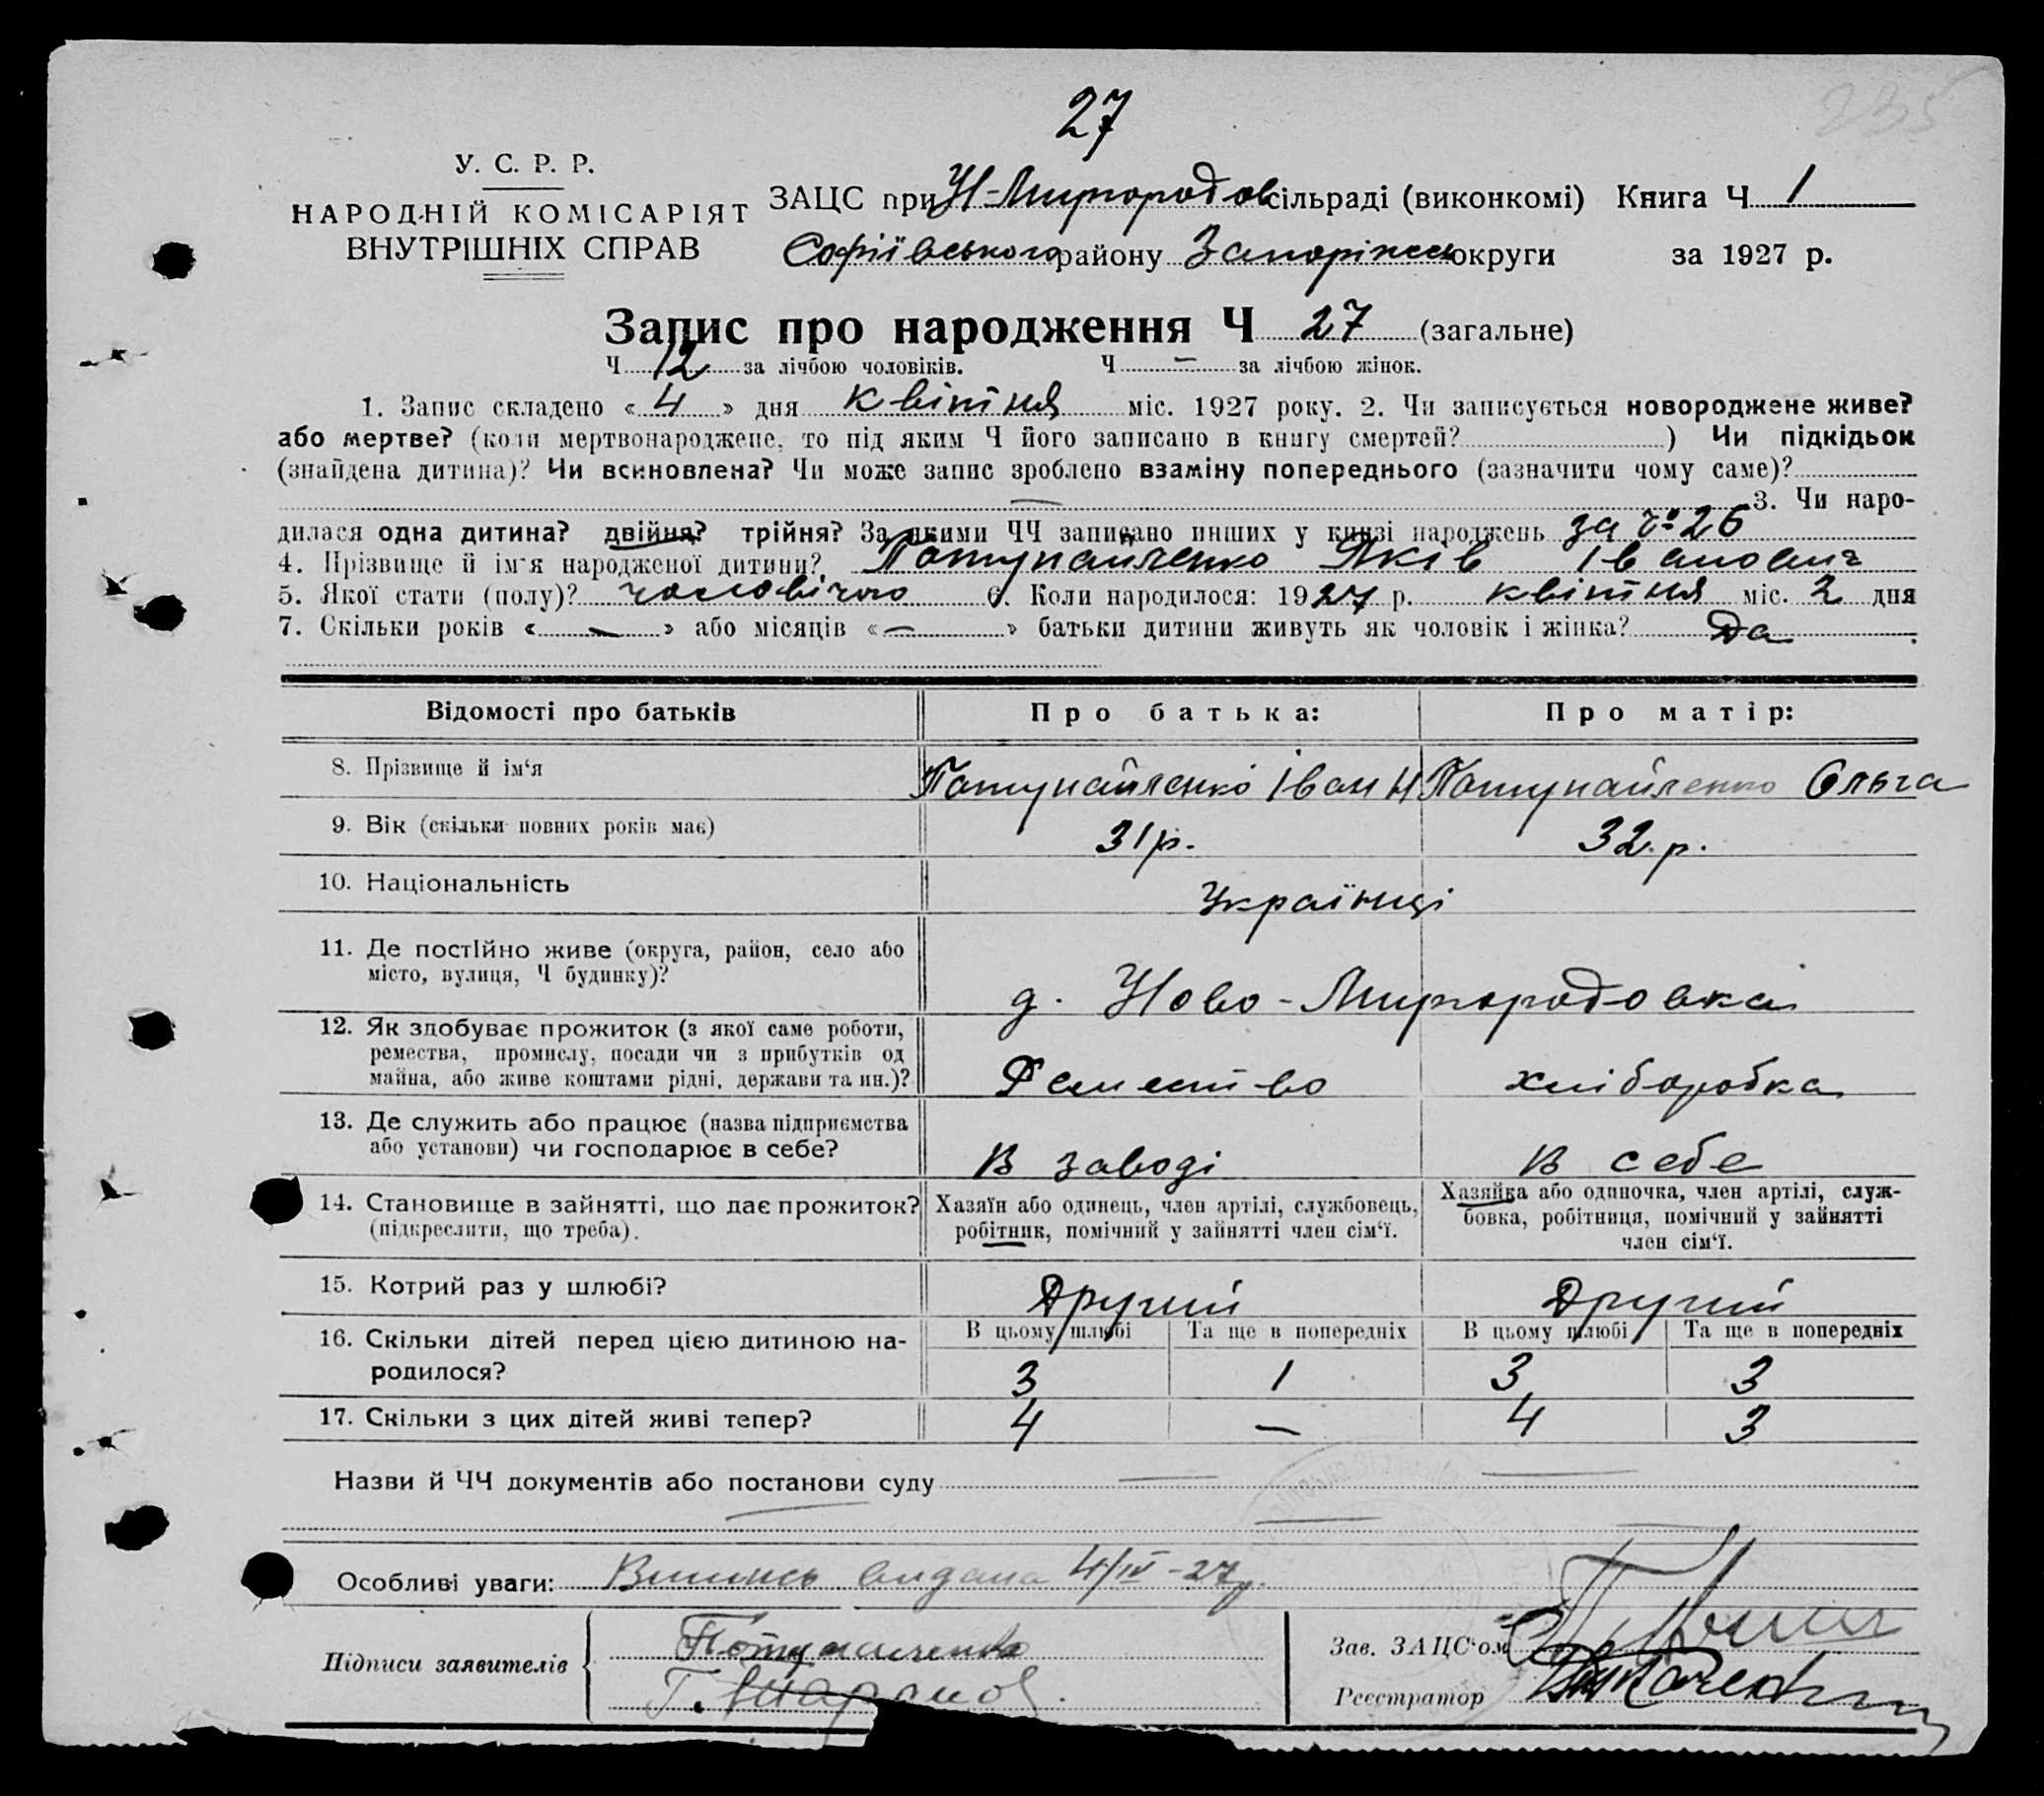 27
235
У. С. Р. Р.
НАРОДНІЙ КОМІСАРІЯТ
ВНУТРІШНІХ СПРАВ
ЗАЦС при Н-Миргородов сільраді (виконкомі) Книга Ч 1
Софіївського району Запоріжськ округи за 1927 р.
Запис про народження Ч 27 (загальне)
Ч 12 за лічбою чоловіків. Ч — за лічбою жінок.
1. Запис складено « 4 » дня квітня міс. 1927 року. 2. Чи записується новороджене живе?
або мертве? (коли мертвонароджене, то під яким Ч його записано в книгу смертей? ) Чи підкідьок
(знайдена дитина)? Чи всиновлена? Чи може запис зроблено взаміну попереднього (зазначити чому саме)?
— 3. Чи наро-
дилася одна дитина? двійня? трійня? За якими ЧЧ записано инших у книзі народжень за № 26
4. Прізвище й ім'я народженої дитини? Потупайченко Яків Іванович
5. Якої стати (полу)? чоловічого 6. Коли народилося: 1927 р. квітня міс. 2 дня
7. Скільки років « — » або місяців « — » батьки дитини живуть як чоловік і жінка? Да
Відомості про батьків Про батька: Про матір:
8. Прізвище й ім'я Потупайченко Іван Н Потупайченко Ольга
9. Вік (скільки повних років має) 31 р. 32 р.
10. Національність Українці
11. Де постійно живе (округа, район, село або
місто, вулиця, Ч будинку)?
д. Ново-Миргородовка
12. Як здобуває прожиток (з якої саме роботи,
ремества, промислу, посади чи з прибутків од
майна, або живе коштами рідні, держави та ин.)? Ремество хліборобка
13. Де служить або працює (назва підприємства
або установи) чи господарює в себе? В заводі В себе
14. Становище в зайнятті, що дає прожиток?
(підкреслити, що треба).
Хазяїн або одинець, член артілі, службовець,
робітник, помічний у зайнятті член сім'ї.
Хазяйка або одиночка, член артілі, служ-
бовка, робітниця, помічний у зайнятті
член сім'ї.
15. Котрий раз у шлюбі? Другий Другий
16. Скільки дітей перед цією дитиною на-
родилося?
В цьому шлюбі Та ще в попередніх В цьому шлюбі Та ще в попередніх
3 1 3 3
17. Скільки з цих дітей живі тепер? 4 — 4 3
Назви й ЧЧ документів або постанови суду
Особливі уваги: Випись видана 4/IV-27р.
Підписи заявителів Потупайченко
Зав. ЗАЦС'ом
Реєстратор